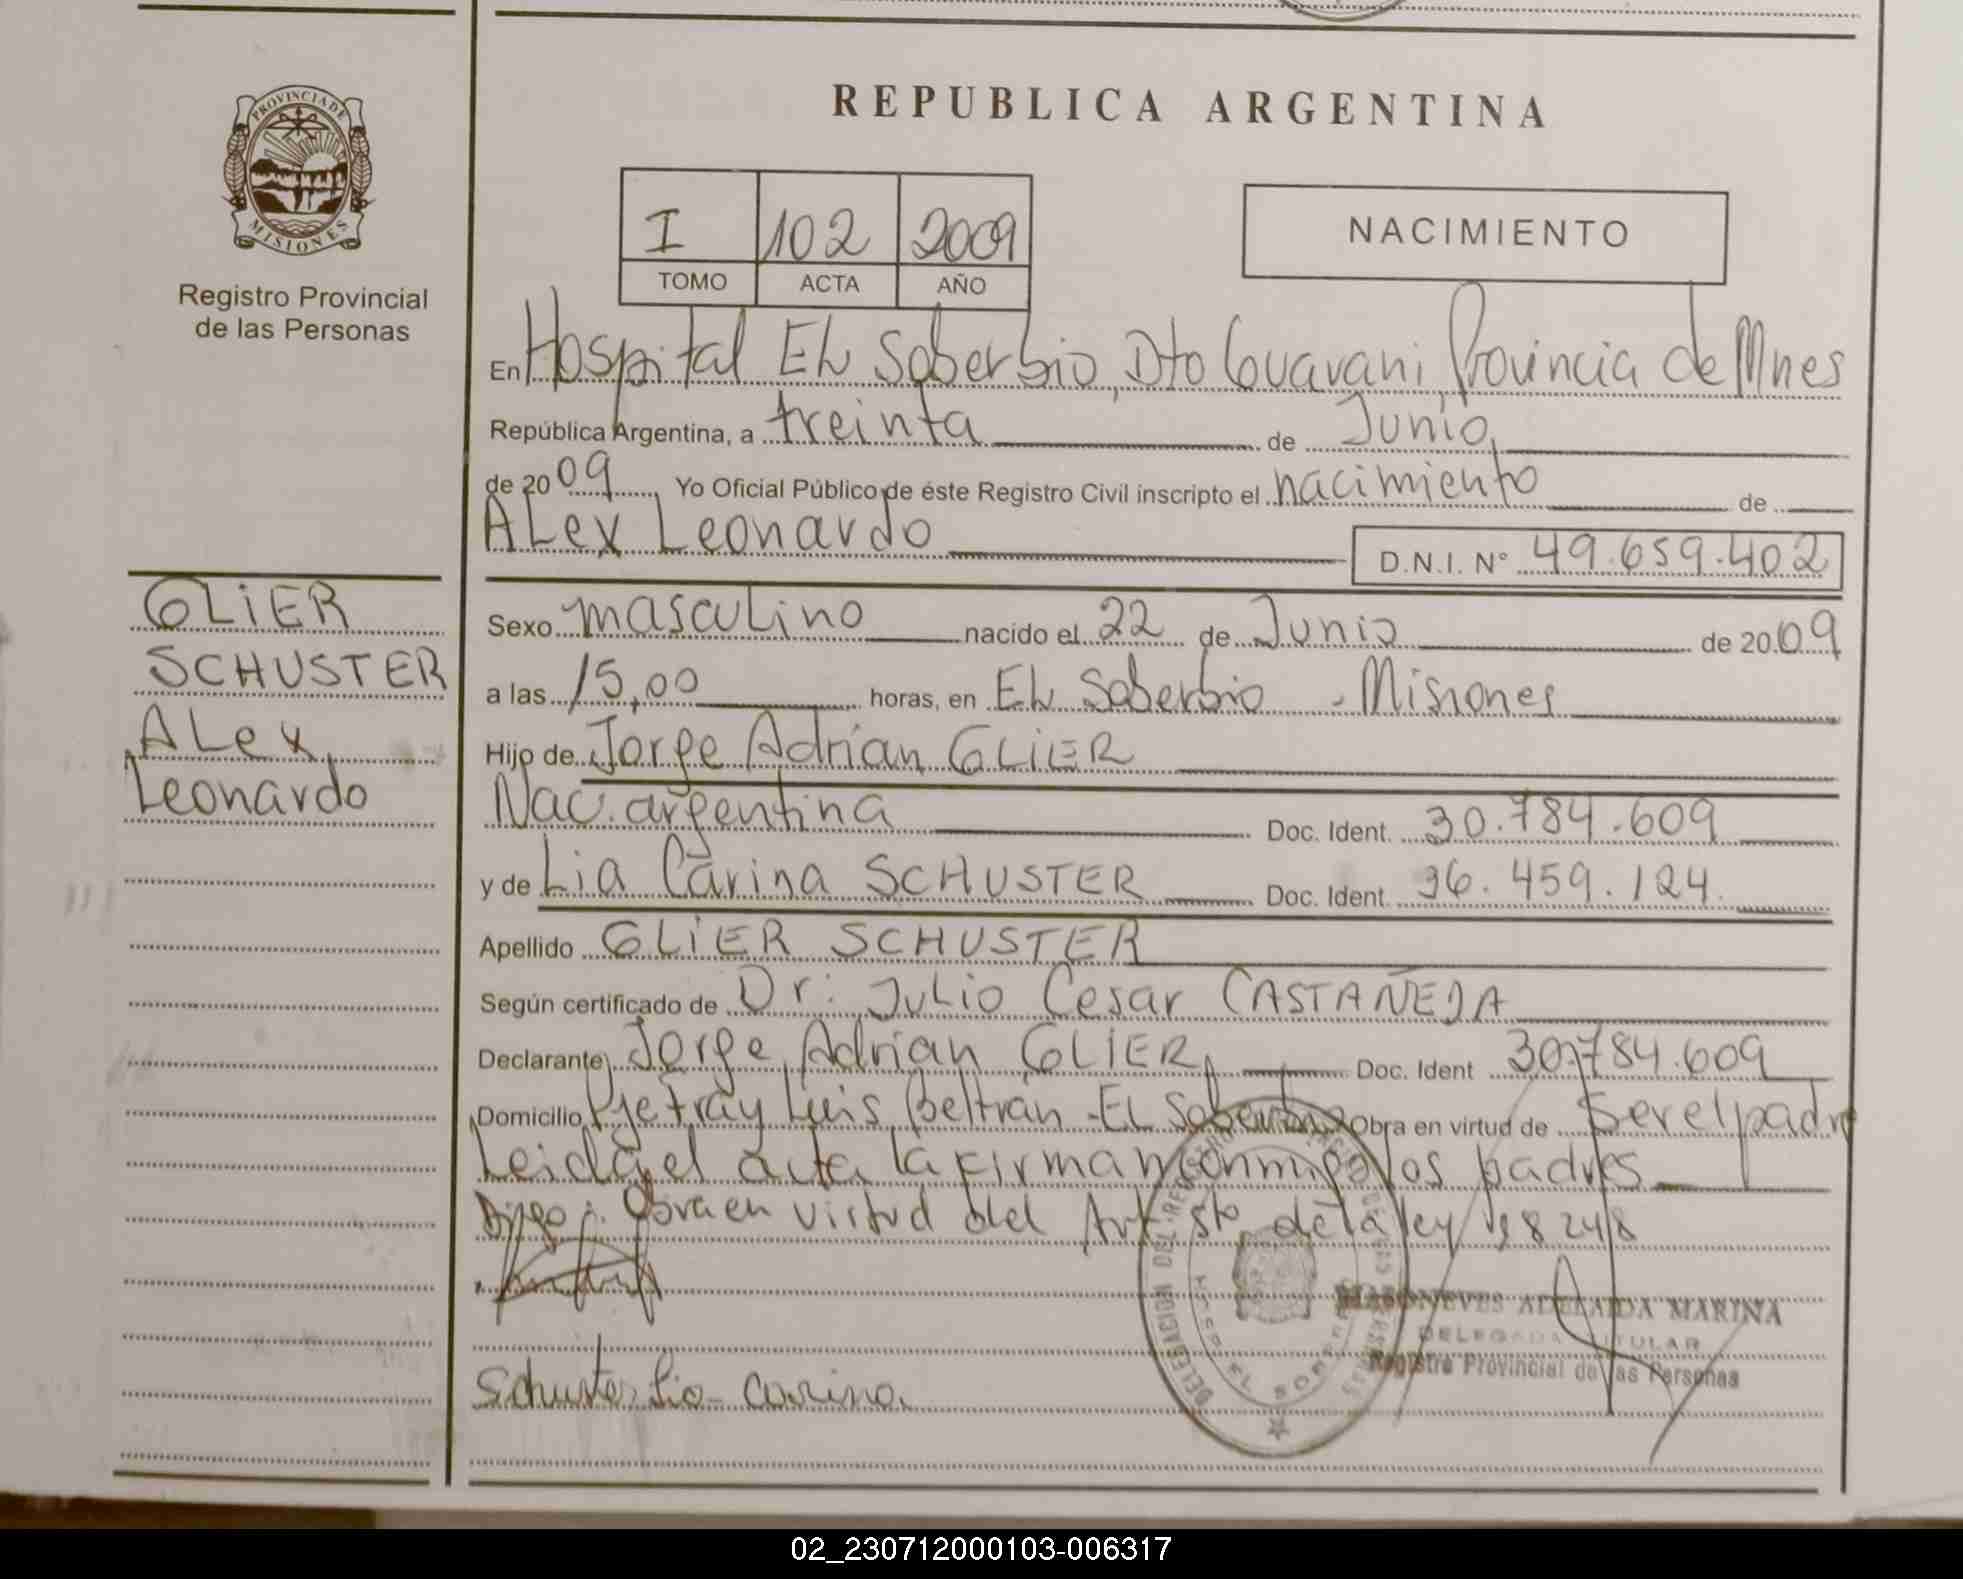 PROVINCIA DE
MISIONES
Registro Provincial
de las Personas
GLIER
SCHUSTER
ALex
Leonardo
REPUBLICA ARGENTINA
I 102 2009
TOMO ACTA AÑO
NACIMIENTO
En Hospital EL Soberbio, Dto Guarani Provincia de Mnes
República Argentina, a treinta de Junio
de 2009 Yo Oficial Público de éste Registro Civil inscripto el nacimiento de
ALex Leonardo D.N.I. N° 49.659.402
Sexo masculino nacido el 22 de Junio de 2009
a las 15,00 horas, en EL Soberbio - Misiones
Hijo de Jorge Adrian GLIER
Nac. argentina Doc. Ident. 30.784.609
y de Lia Carina SCHUSTER Doc. Ident. 36.459.124.
Apellido GLIER SCHUSTER
Según certificado de Dr. Julio Cesar CASTAÑEDA
Declarante Jorge Adrian GLIER Doc. Ident 30.784.609
Domicilio Pje Fray Luis Beltran - EL Soberbio Obra en virtud de Ser el padre
Leida el acta la firman conmigo los padres
Digo: Obra en virtud del Art 5to de la ley 18248
Schuster Lia Carina
DELEGACION DEL REGISTRO
HOSP. EL SOBERBIO
ADELAIDA MARINA
DELEGADA TITULAR
Registro Provincial de las Personas
02_230712000103-006317